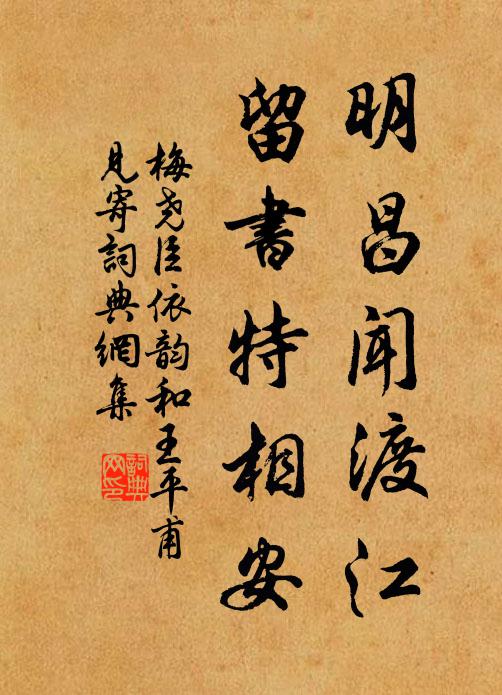 明昌闻渡江
留書特相安
梅尧臣依韵和王平甫
見寄詞典網集
詞典
网印